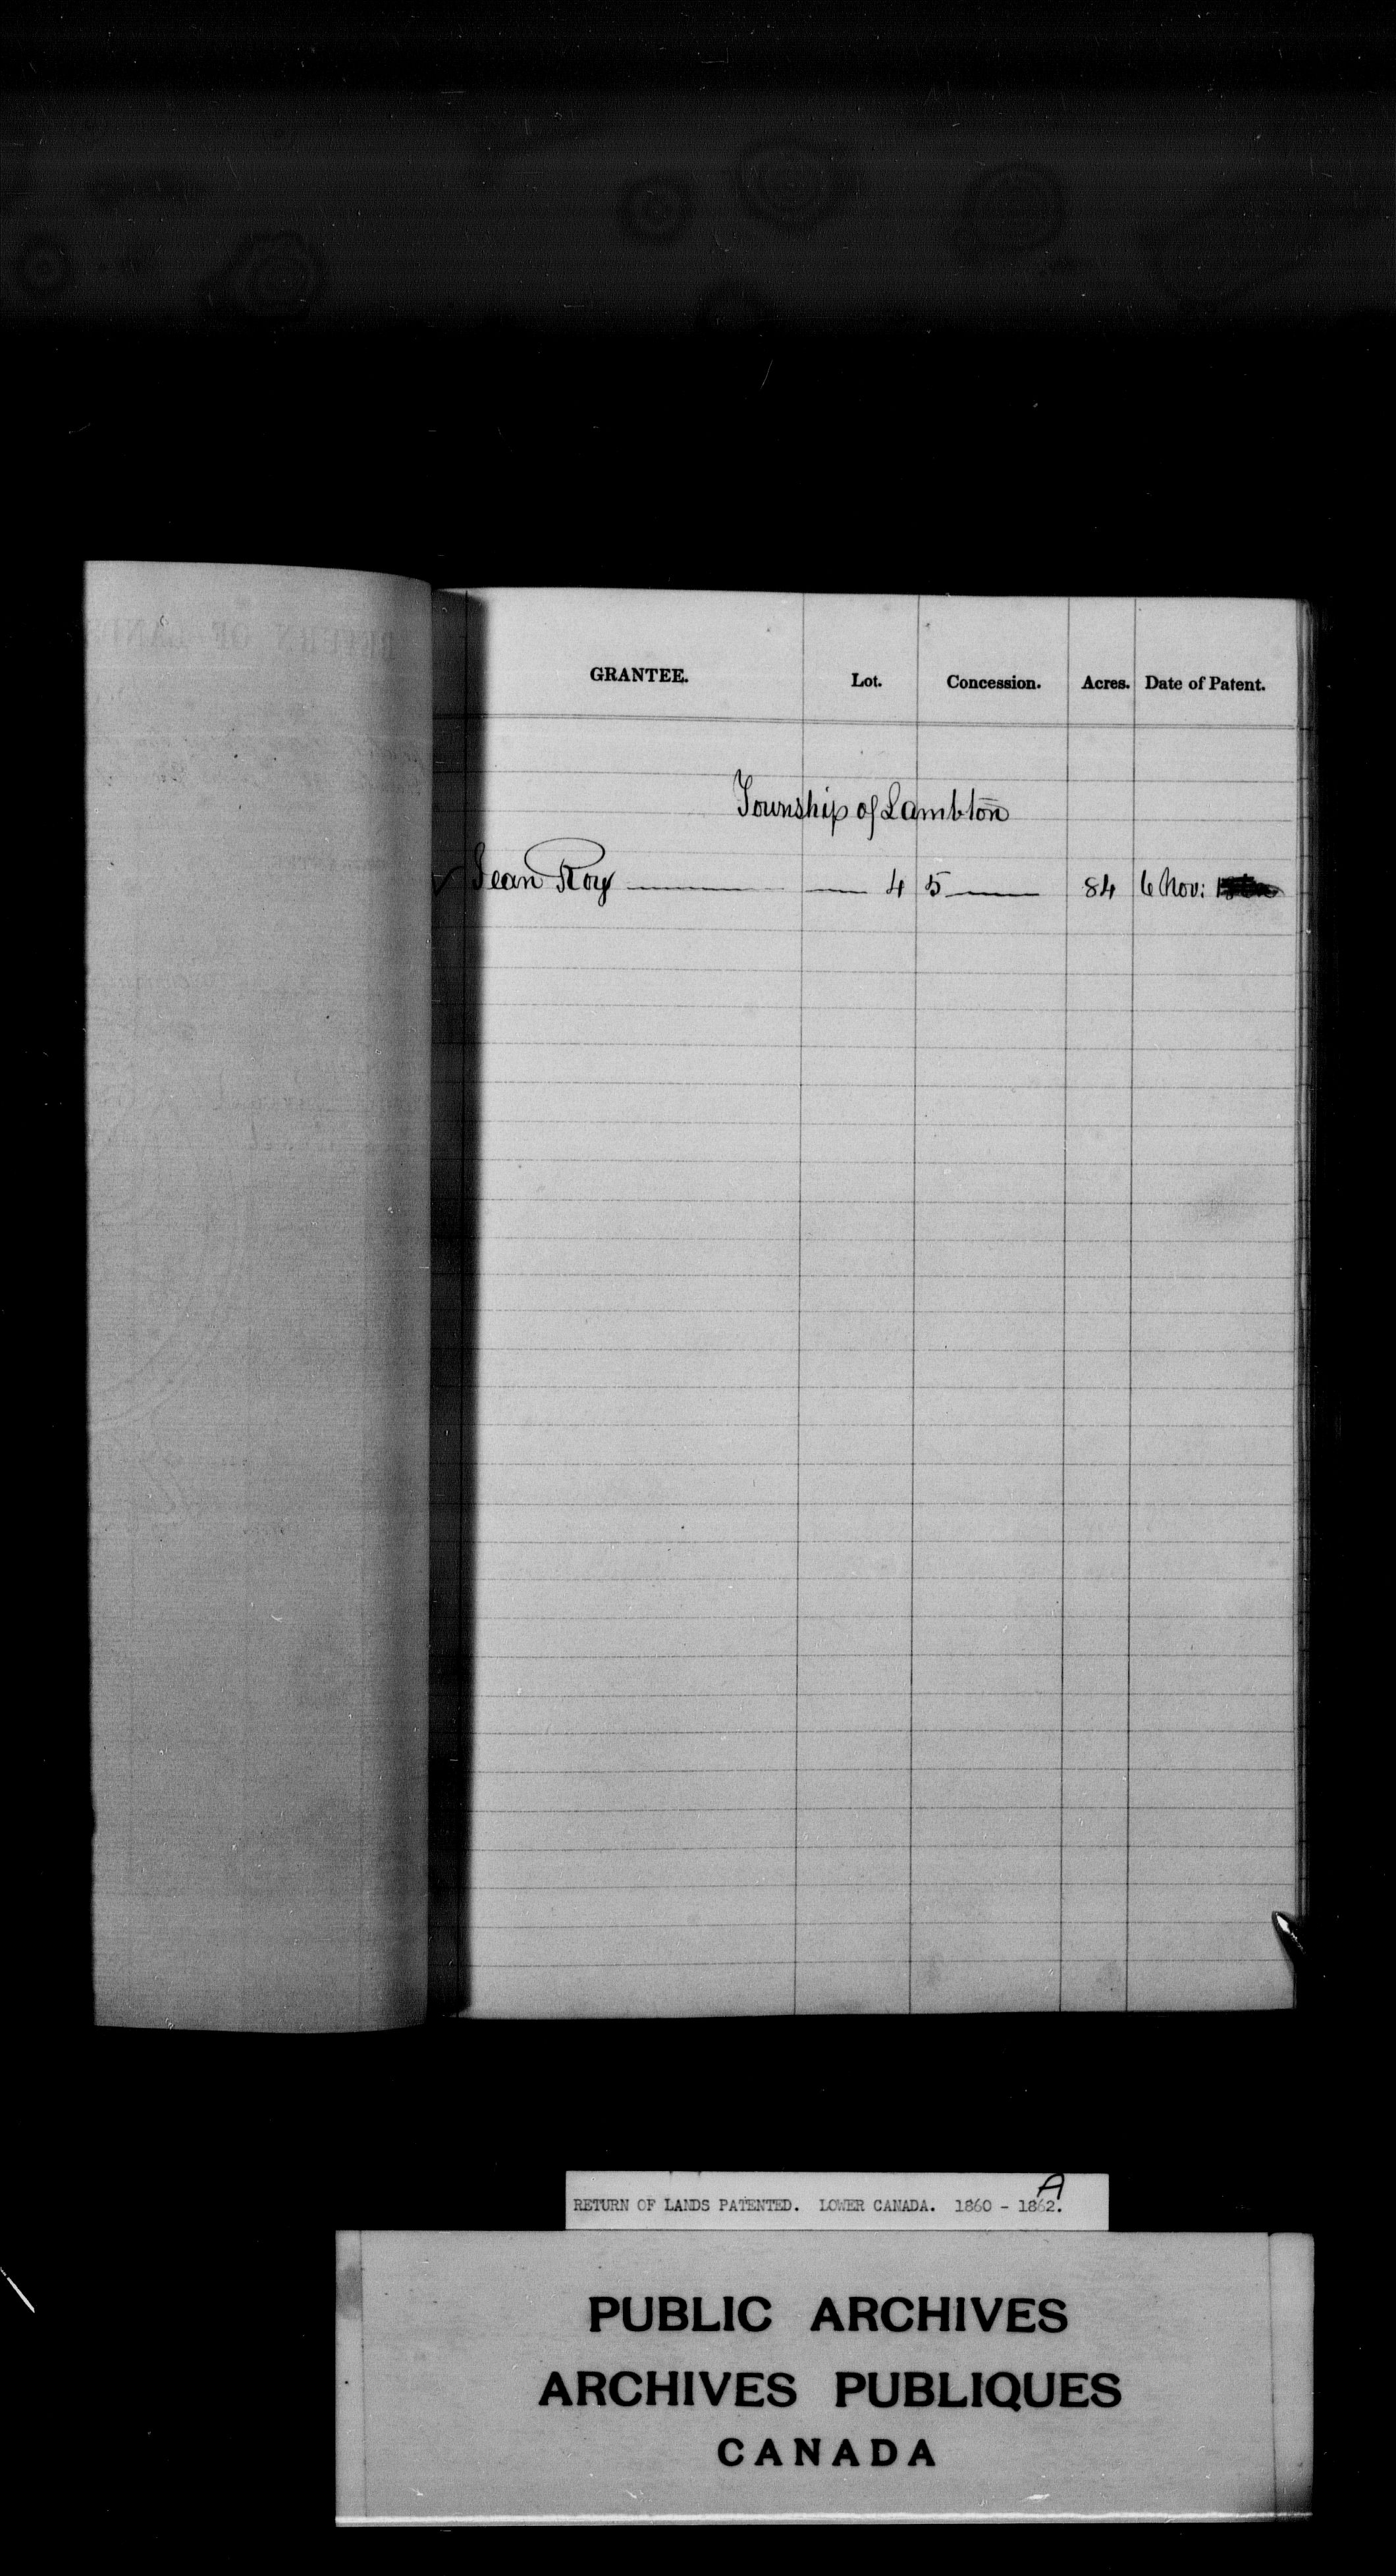 GRANTEE. Lot. Concession. Acres. Date of Patent.
Township of Lambton
Jean Roy 4 5 84 6 Nov:
A
RETURN OF LANDS PATENTED. LOWER CANADA. 1860 - 1862.
PUBLIC ARCHIVES
ARCHIVES PUBLIQUES
CANADA